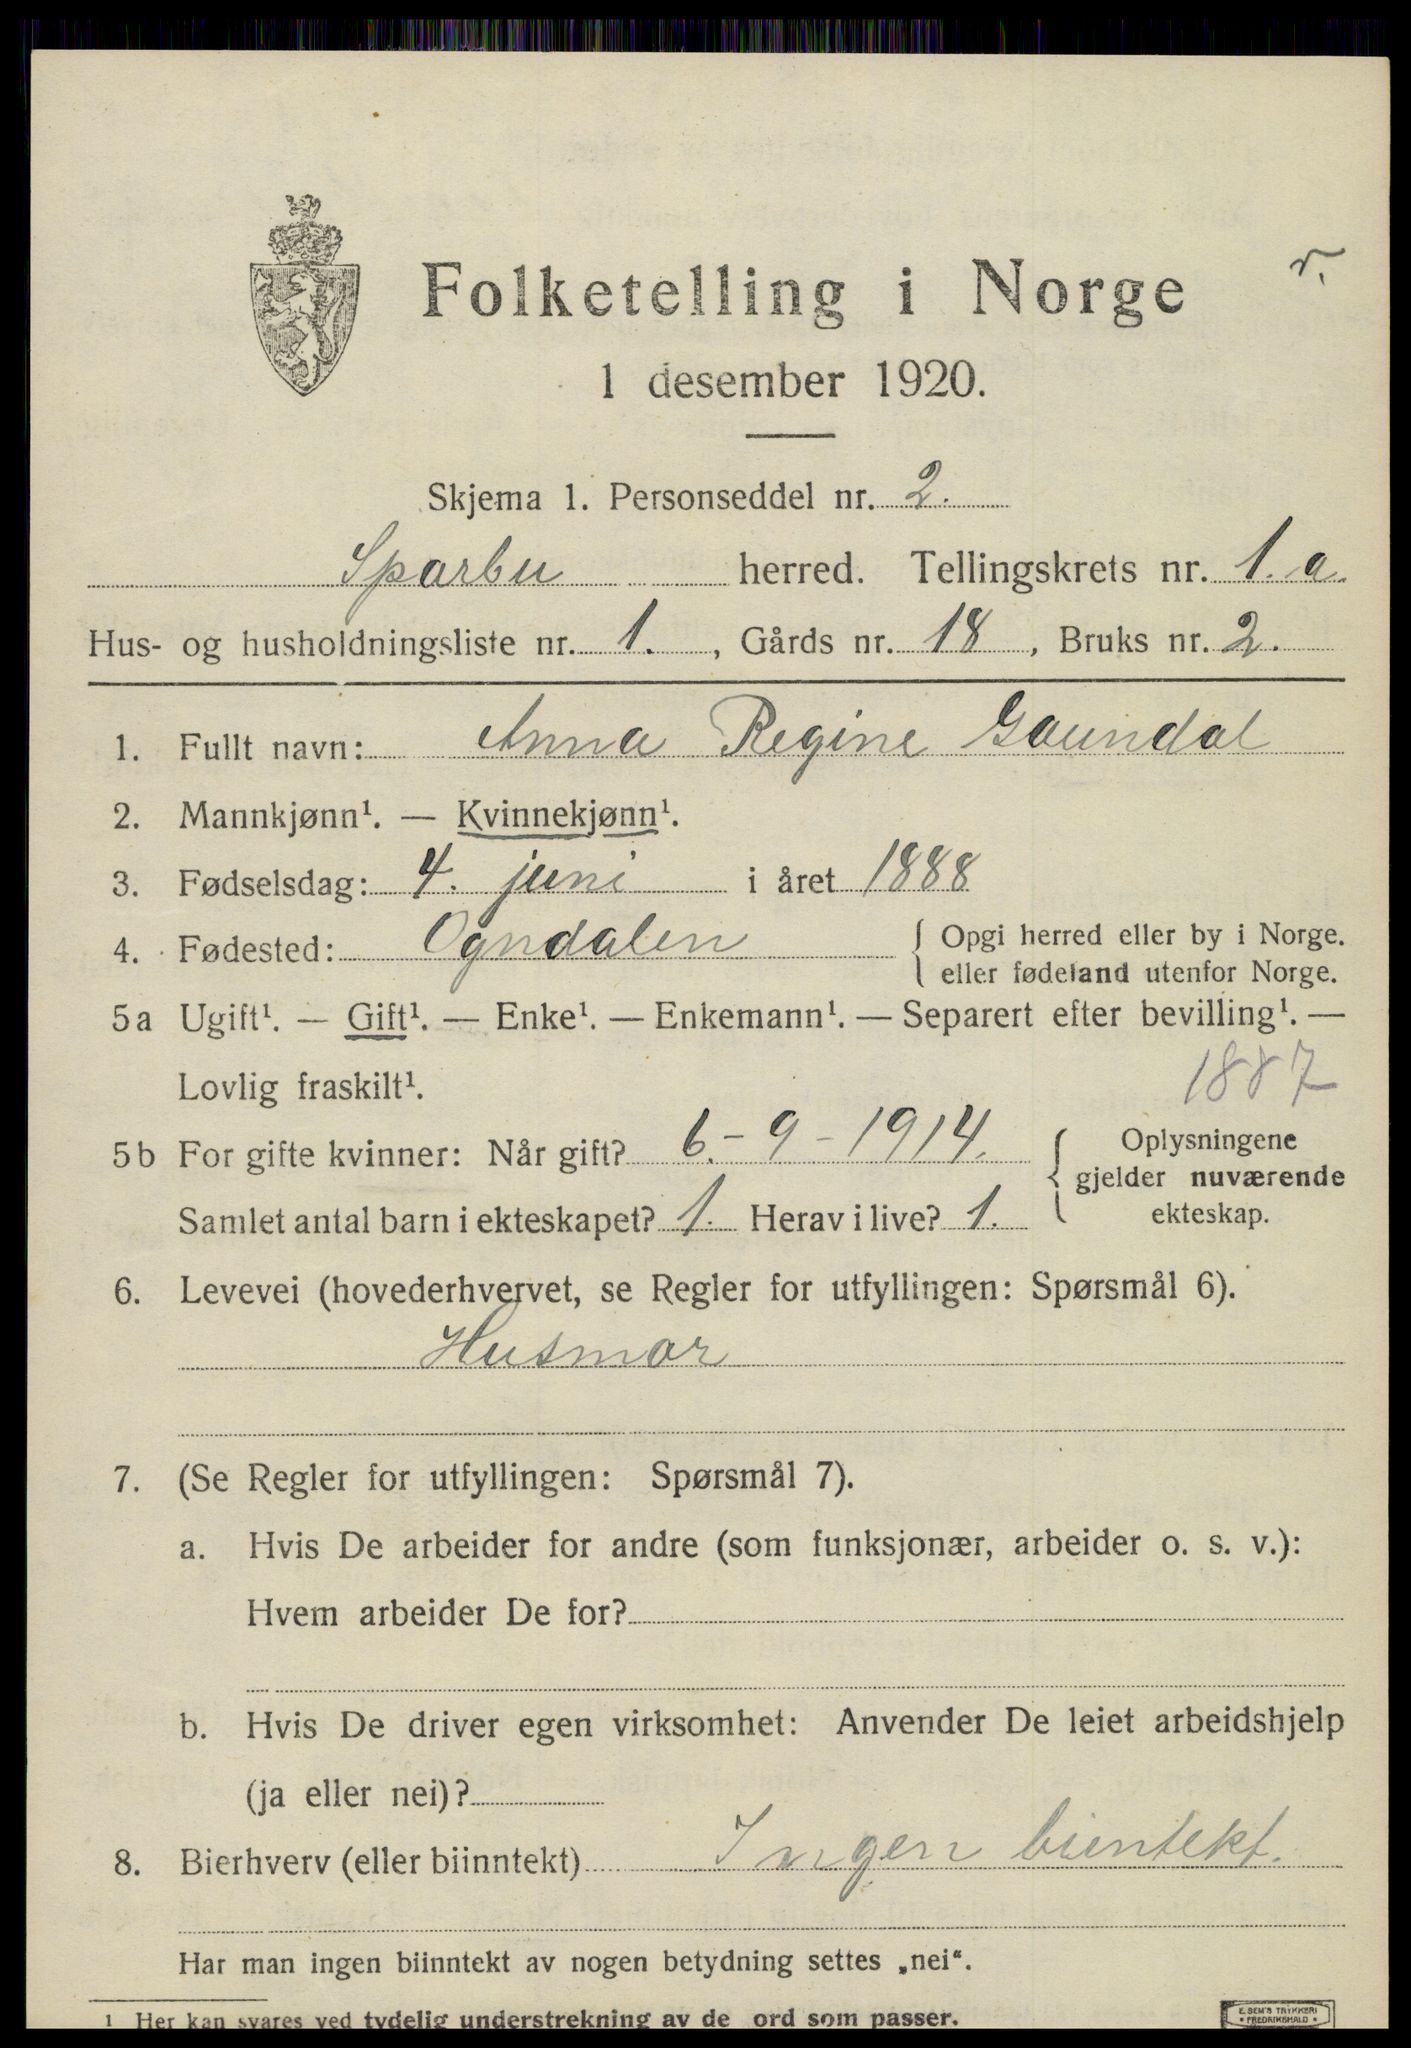 Folketelling i Norge
r.
1 desember 1920.
Skjema 1. Personseddel nr. 2.
Sparbu herred. Tellingskrets nr. 1. a.
Hus- og husholdningsliste nr. 1., Gårds nr. 18, Bruks nr. 2.
1. Fullt navn: Anna Regine Gaundal
2. Mannkjønn¹. — Kvinnekjønn¹.
3. Fødselsdag: 4. juni i året 1888
4. Fødested: Ogndalen { Opgi herred eller by i Norge.
eller fødeland utenfor Norge.
5a Ugift¹. — Gift¹. — Enke¹. — Enkemann¹. — Separert efter bevilling¹. —
Lovlig fraskilt¹. 1887
5b For gifte kvinner: Når gift? 6.-9-1914. { Oplysningene
gjelder nuværende
ekteskap.
Samlet antal barn i ekteskapet? 1. Herav i live? 1.
6. Levevei (hovederhvervet, se Regler for utfyllingen: Spørsmål 6).
Husmor
7. (Se Regler for utfyllingen: Spørsmål 7).
a. Hvis De arbeider for andre (som funksjonær, arbeider o. s. v.):
Hvem arbeider De for?
b. Hvis De driver egen virksomhet: Anvender De leiet arbeidshjelp
(ja eller nei)?
8. Bierhverv (eller biinntekt) Ingen bientekt.
Har man ingen biinntekt av nogen betydning settes „nei“.
¹ Her kan svares ved tydelig understrekning av de ord som passer.
E. SEM'S TRYKKERI
• FREDRIKSHALD •